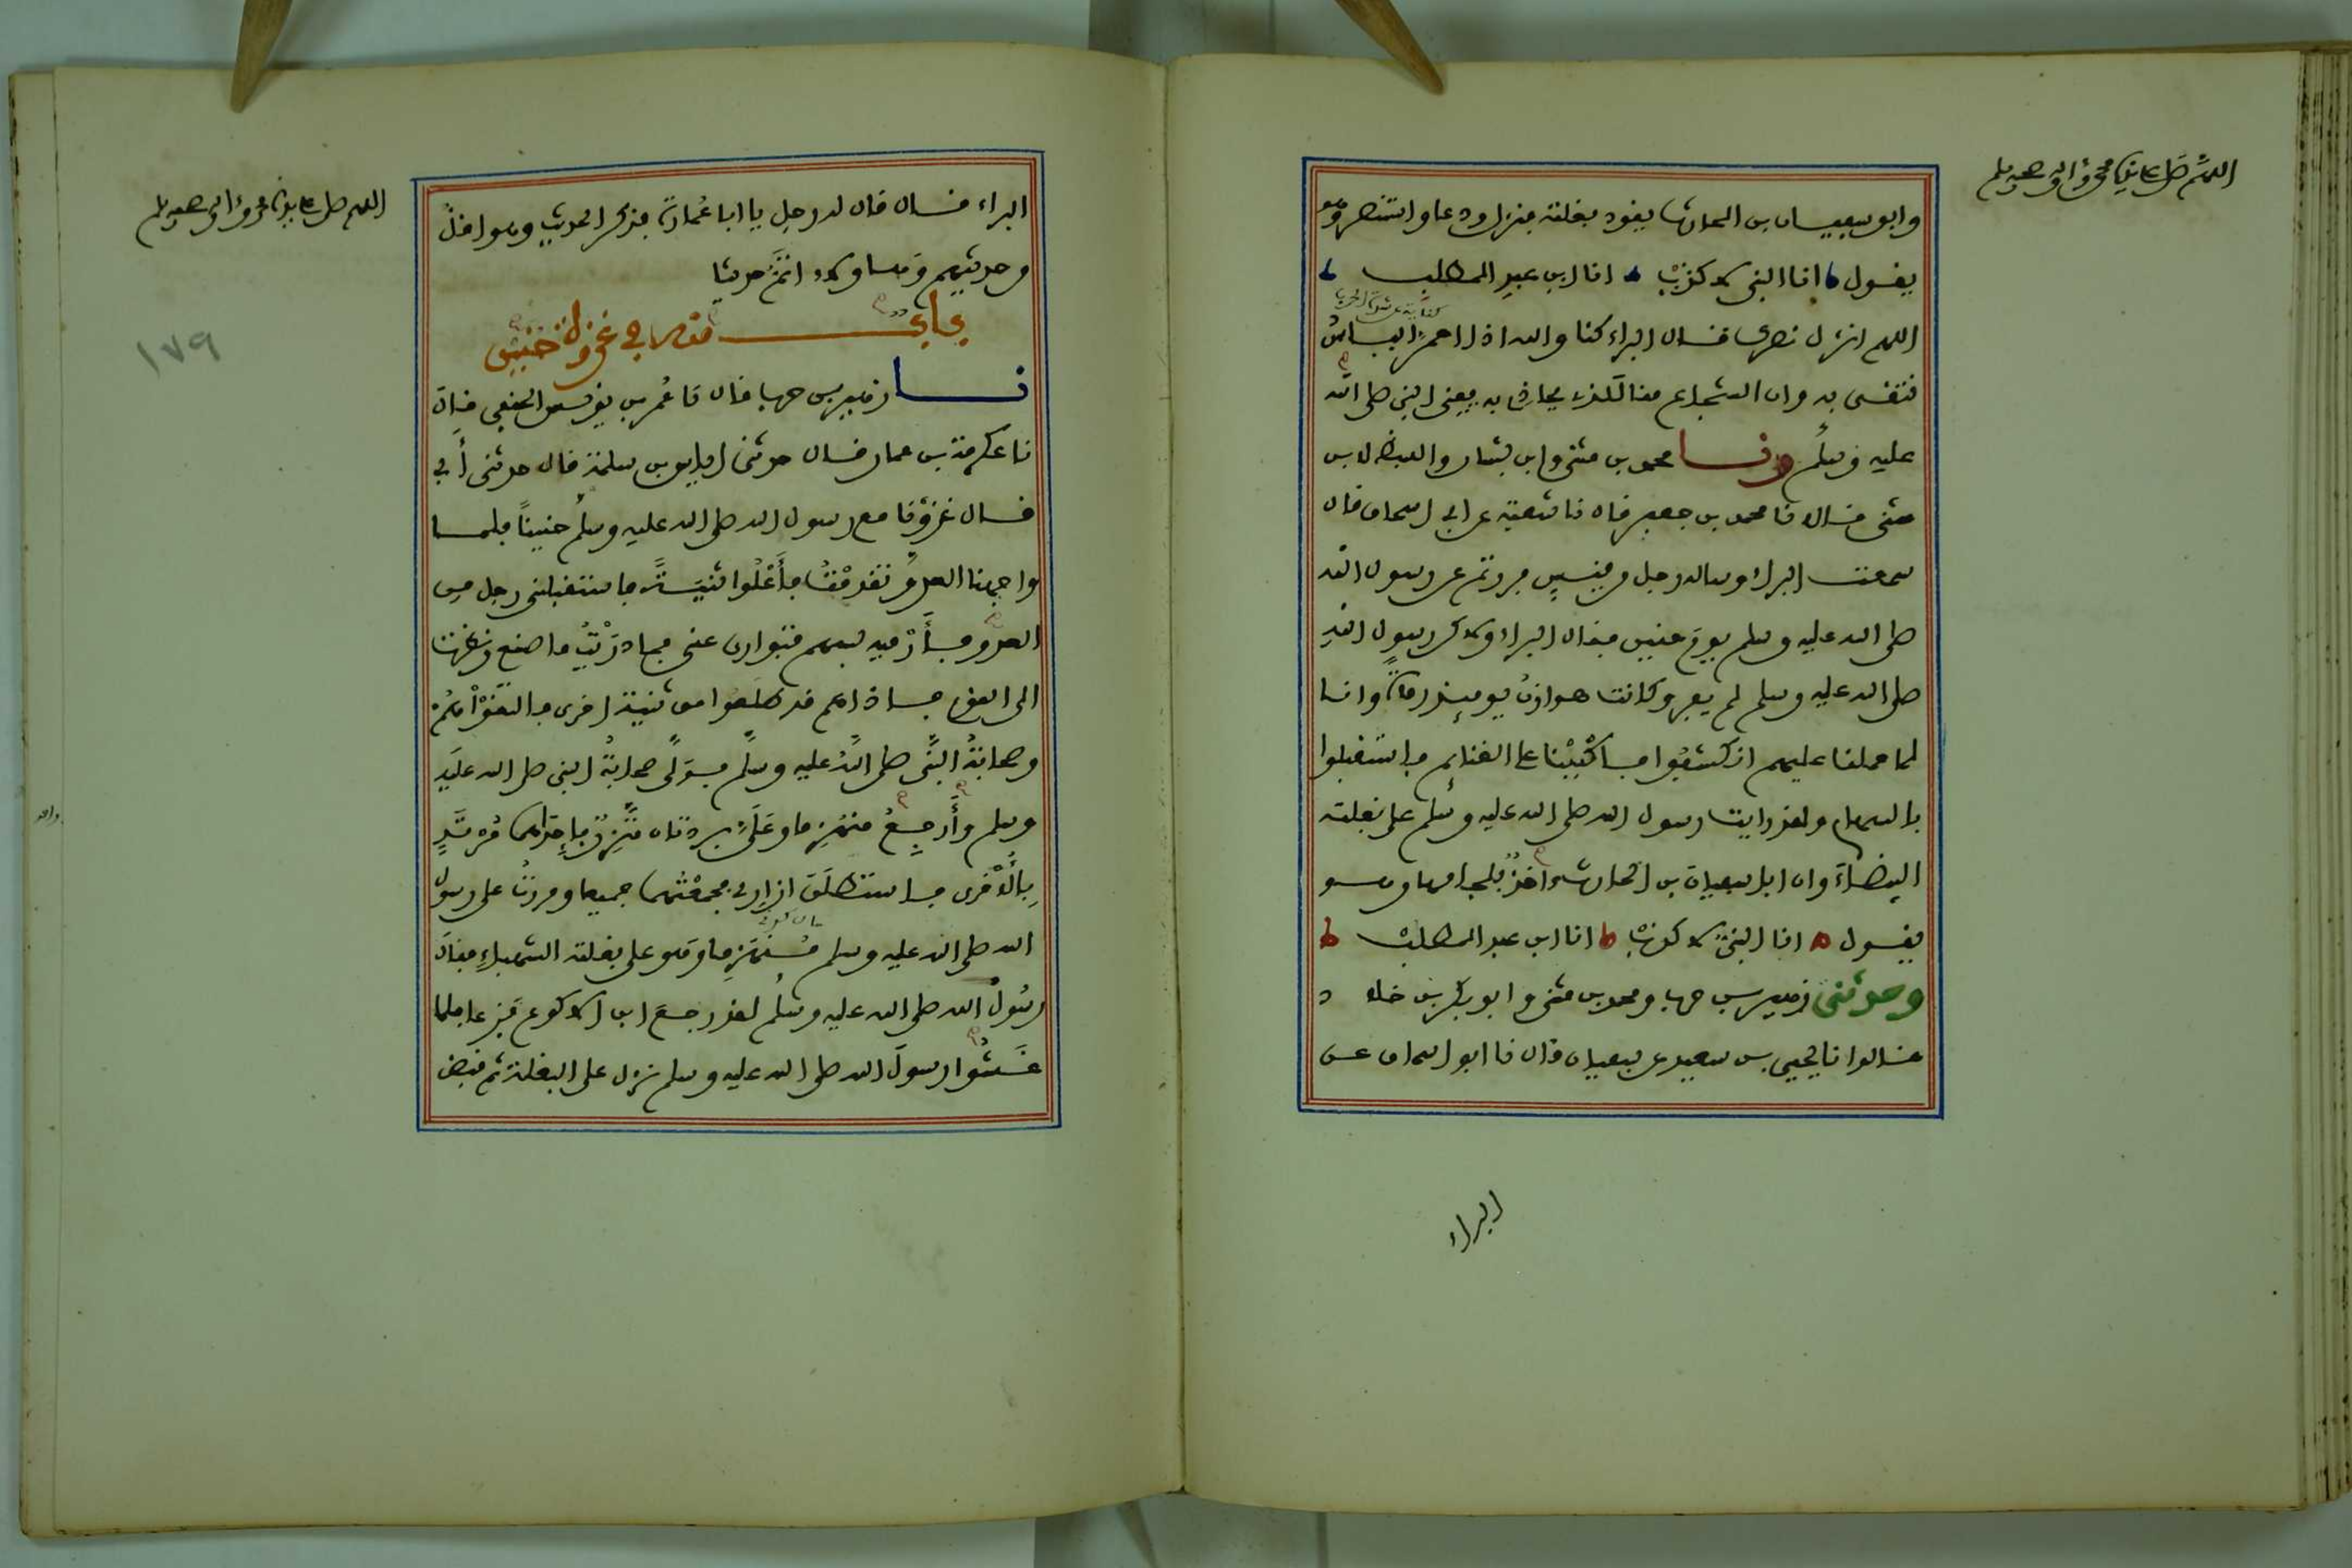 اللهم صل على نبينا محمد وءاله وصحبه وسلم
وابو سفيان بن الحارث يقود بغلته فنزل ودعا واستنصر وهو
يقول انا النبي لا كذب انا ابن عبد المطلب
كناية عن شدة الحرب
اللهم انزل نصرك قال البراء كنا والله اذا احمر البأس
نتقى به وان الشجاع منا للذى يحاذى به يعنى النبي صلى الله
عليه وسلم ونا محمد بن مثنى وابن بشار واللفظ لابن
مثنى قالا نا محمد بن جعفر قال نا شعبة عن ابي اسحاق قال
سمعت البراء وساله رجل من قيس فررتم عن رسول الله
صلى الله عليه وسلم يوم حنين فقال البراء ولاكن رسول الله
صلى الله عليه وسلم لم يفر وكانت هوازن يومئذ رماة وانا
لما حملنا عليهم انكشفوا فاكببنا على الغنائم فاستقبلوا
بالسهام ولقد رايت رسول الله صلى الله عليه وسلم على بغلته
البيضاء وان ابا سفيان بن الحارث ءاخذ بلجامها وهو
يقول انا النبي لا كذب انا ابن عبد المطلب
وحدثنى زهير بن حرب ومحمد بن مثنى وابو بكر بن خلاد
قالوا نا يحيى بن سعيد عن سفيان قال نا ابو اسحاق عن
البراء
اللهم صل على نبينا محمد وءاله وصحبه وسلم
١٧٩
البراء قال قال له رجل يا ابا عمارة فذكر الحديث وهو اقل
من حديثهم وهاولاء اتم حديثا
باب منه في غزوة حنين
نا زهير بن حرب قال نا عمر بن يونس الحنفى قال
نا عكرمة بن عمار قال حدثنى اياس بن سلمة قال حدثنى أبي
قال غزونا مع رسول الله صلى الله عليه وسلم حنينا فلما
واجهنا العدو تقدمت فأعلوا ثنية فاستقبلنى رجل من
العدو فأرميه بسهم فتوارى عنى فما دريت ما صنع ونظرت
الى القوم فاذا هم قد طلعوا من ثنية اخرى فالتقوا هم
وصحابة النبي صلى الله عليه وسلم فولى صحابة النبي صلى الله عليه
وسلم وأرجع منهزما وعلى بردتان متزر بإحداهما مرتد
بالأخرى فاستطلق ازارى فجمعتهما جميعا ومررت على رسول
الله صلى الله عليه وسلم منهزما وهو على بغلته الشهباء فقال
رسول الله صلى الله عليه وسلم لقد رجع ابن الاكوع فزعا فلما
غشوا رسول الله صلى الله عليه وسلم نزل على البغلة ثم قبض